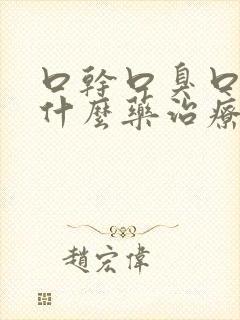 口幹口臭口
什麼藥治療
趙宏偉